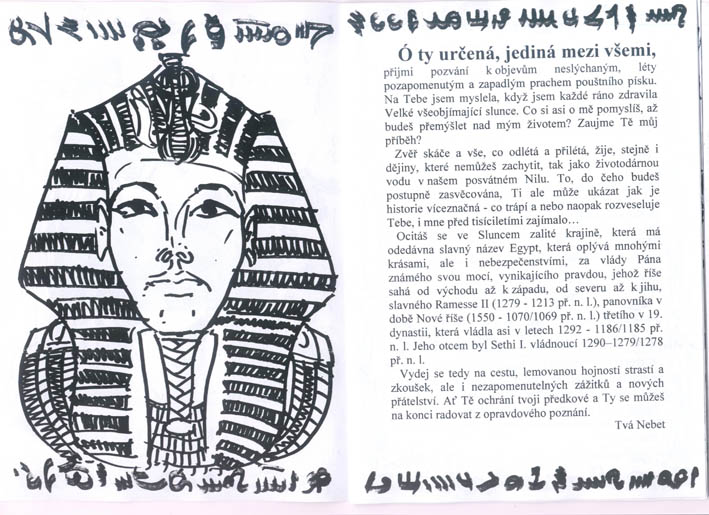 Ó ty určená, jediná mezi všemi,
přijmi pozvání k objevům neslýchaným, léty
pozapomenutým a zapadlým prachem pouštního písku.
Na Tebe jsem myslela, když jsem každé ráno zdravila
Velké všeobjímající slunce. Co si asi o mě pomyslíš, až
budeš přemýšlet nad mým životem? Zaujme Tě můj
příběh?
Zvěř skáče a vše, co odlétá a přilétá, žije, stejně i
dějiny, které nemůžeš zachytit, tak jako životodárnou
vodu v našem posvátném Nilu. To, do čeho budeš
postupně zasvěcována, Ti ale může ukázat jak je
historie víceznačná - co trápí a nebo naopak rozveseluje
Tebe, i mne před tisíciletími zajímalo…
Ocitáš se ve Sluncem zalité krajině, která má
odedávna slavný název Egypt, která oplývá mnohými
krásami, ale i nebezpečenstvími, za vlády Pána
známého svou mocí, vynikajícího pravdou, jehož říše
sahá od východu až k západu, od severu až k jihu,
slavného Ramesse II (1279 - 1213 př. n. l.), panovníka v
době Nové říše (1550 - 1070/1069 př. n. l.) třetího v 19.
dynastii, která vládla asi v letech 1292 - 1186/1185 př.
n. l. Jeho otcem byl Sethi I. vládnoucí 1290–1279/1278
př. n. l.
Vydej se tedy na cestu, lemovanou hojností strastí a
zkoušek, ale i nezapomenutelných zážitků a nových
přátelství. Ať Tě ochrání tvoji předkové a Ty se můžeš
na konci radovat z opravdového poznání.
Tvá Nebet